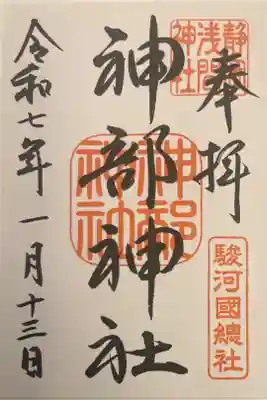 奉拝
静岡
浅間
神社
駿河國總社
神部神社
神部
神社
令和七年一月十三日